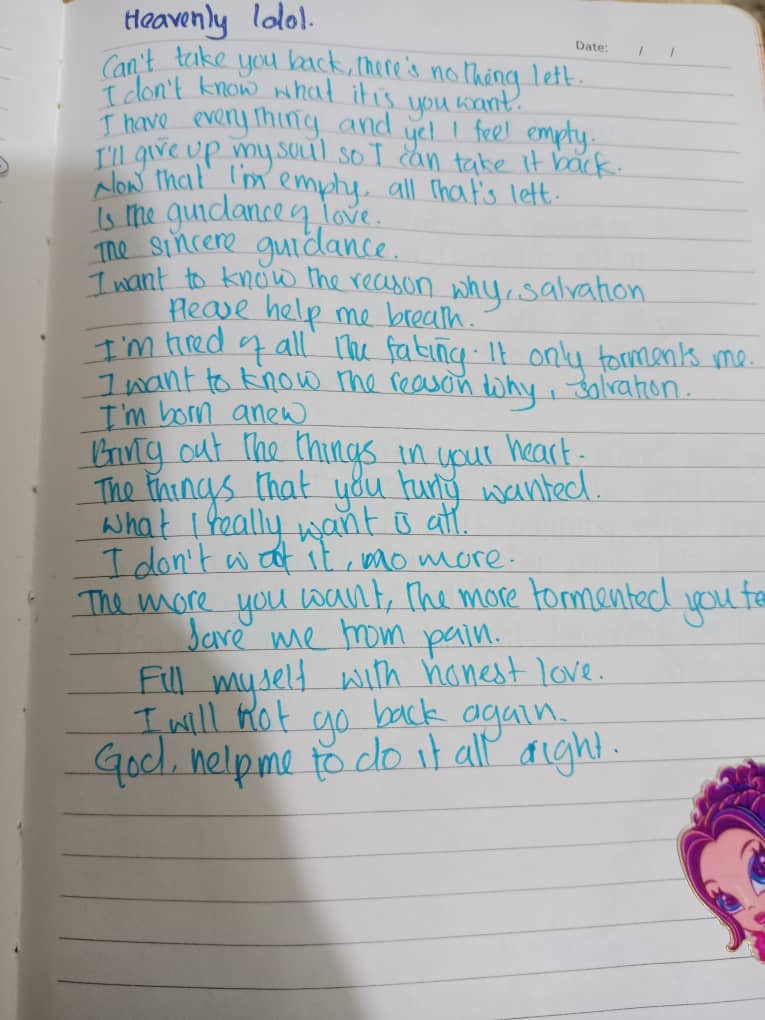 Heavenly Idol.
Date: / /
Can't take you back, there's nothing left.
I don't know what it is you want.
I have everything and yet I feel empty.
I'll give up my soul so I can take it back.
Now that I'm empty, all that's left.
Is the guidance of love.
The sincere guidance.
I want to know the reason why, salvation
Please help me breath.
I'm tired of all the faking. It only torments me.
I want to know the reason why, salvation.
I'm born anew
Bring out the things in your heart.
The things that you turly wanted.
What I really want is all.
I don't it, mo more.
The more you want, the more tormented you fe
Save me from pain.
Fill myself with honest love.
I will not go back again.
God, help me to do it all right.